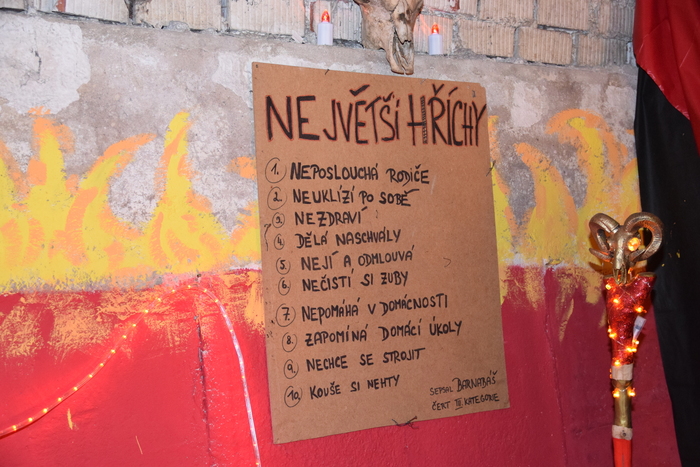 NEJVĚTŠÍ HŘÍCHY
1. NEPOSLOUCHÁ RODIČE
2. NEUKLÍZÍ PO SOBĚ
3. NEZDRAVÍ
4. DĚLÁ NASCHVÁLY
5. NEJÍ A ODMLOUVÁ
6. NEČISTÍ SI ZUBY
7. NEPOMÁHÁ V DOMÁCNOSTI
8. ZAPOMÍNÁ DOMÁCÍ ÚKOLY
9. NECHCE SE STROJIT
10. KOUŠE SI NEHTY
SEPSAL BARNABÁŠ
ČERT III. KATEGORIE